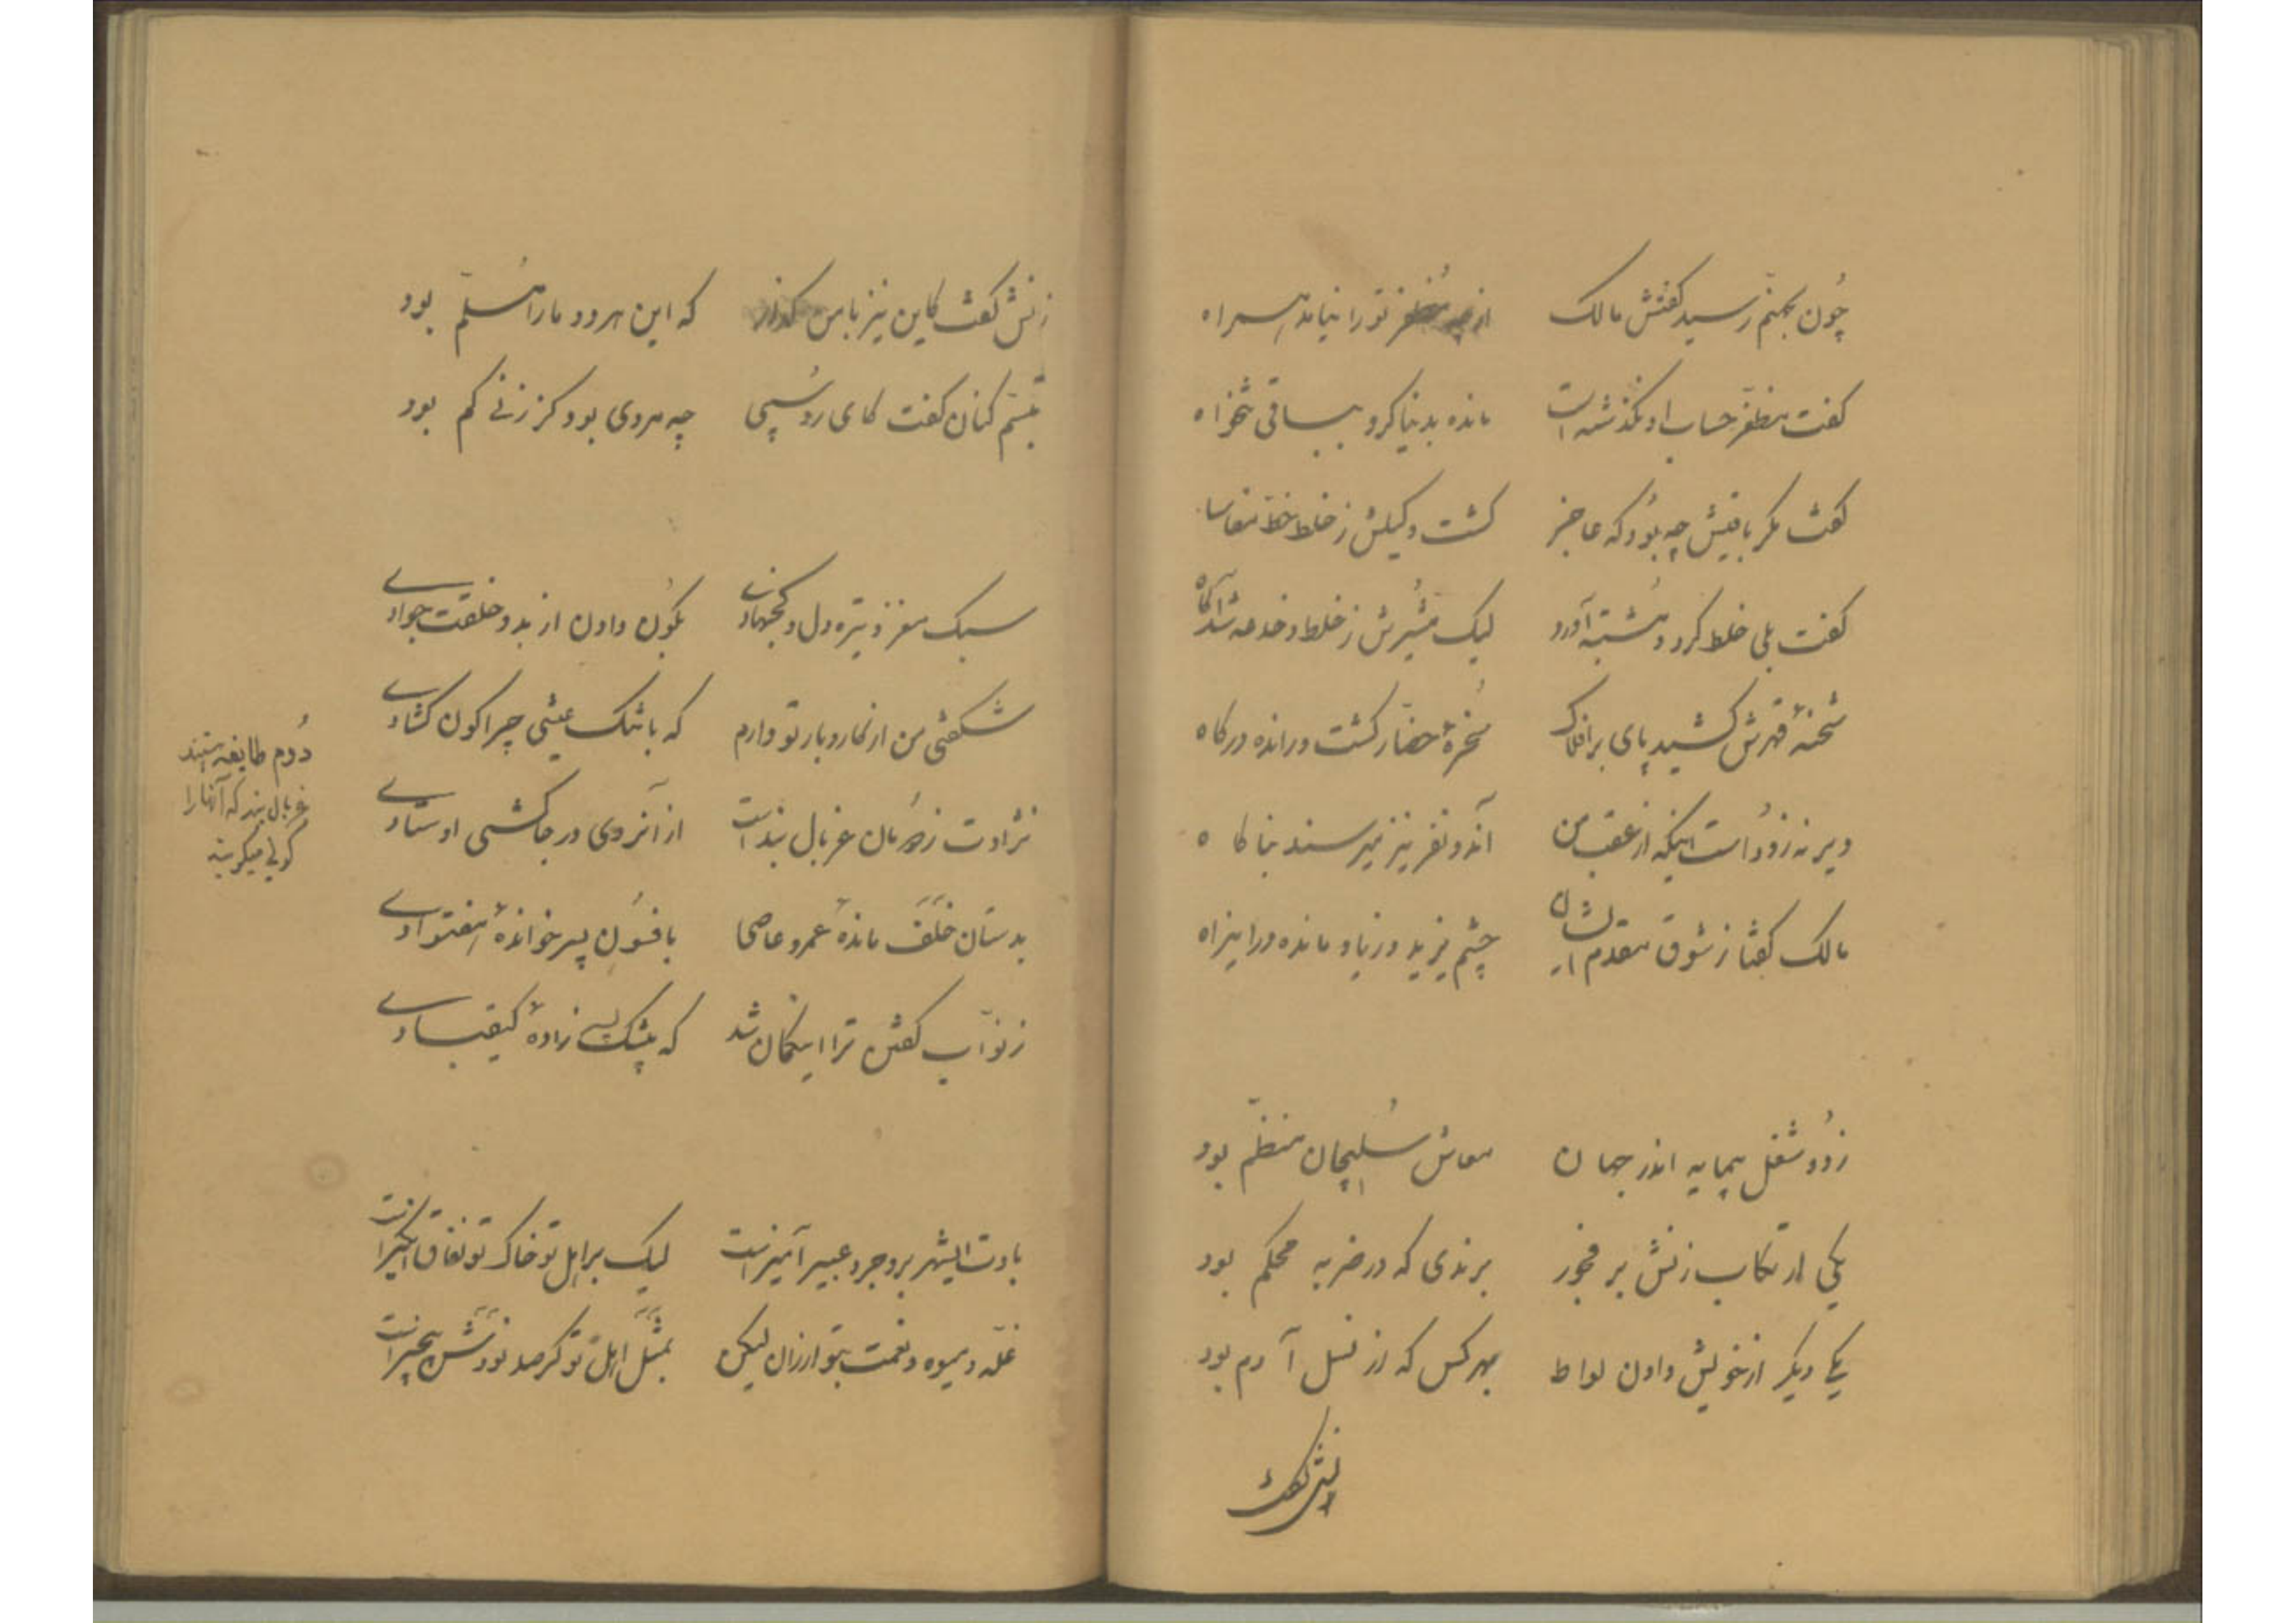 چون بجهنم رسید گفتش مالک از چه مظفر تو را نیامد همراه
گفت مظفر حساب او نگذشته است مانده بدنیا گرو بباقی تنخواه
گفت مگر باقیش چه بود که عاجز گشت وکیلش ز خلط خط تنقاسا
گفت بلی خلط کرد و مشتبه آورد لیک مشیرش ز خلط و خدعه شد آگاه
شحنهٔ قهرش کشید پای بر افلاک سخرهٔ حضار گشت و راندهٔ درگاه
دیر نه زود است اینکه از عقب من آندو نفر نیز میرسند بناگاه
مالک گفتا ز شوق مقدم ایشان چشم یزید و زیاد مانده در این راه
ز دو شغل بیمایه اندر جهان معاش سلیمان منظم بود
یکی ارتکاب زنش بر فجور برندی که در ضربه محکم بود
یکی دیگر از خویش دادن لواط بهر کس که از نسل آدم بود
زنش گفت
زنش گفت کاین نیز با من گذار که این هر دو ما را مسلم بود
تبسم کنان گفت کای روسپی چه مردی بود کز زنی کم بود
سبک مغز و تیره دل و کجنهادی بکون دادن از بدو خلقت جوادی
شگفتی من از کار و بار تو دارم که با تنگ عیشی چرا کون گشادی
نژادت ز دُمان غربال بند است از آنروی در جاکشی اوستادی
بدستان خلف ماندهٔ عمرو عاصی بافسون پسر خواندهٔ
ز نواب گفتن ترا این گمان شد که بیشک پسرزادهٔ کیقبادی
دُوم طایفه هستند غربال بند که آنها را کولی میگویند
بادت ایشهر بروجرد عبیر آمیز است لیک بر اهل تو خاک تو نفاق انگیز است
غله و میوه و نعمت بتو ارزان لیکن بمثل اهل تو گر صد بودش بیچیز است